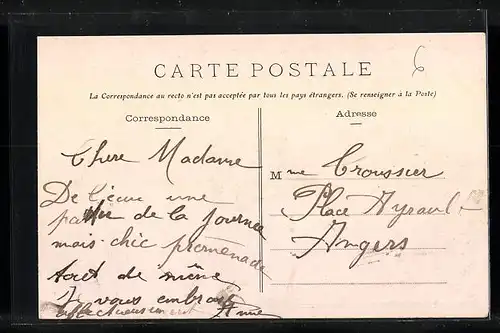 6
CARTE POSTALE
La Correspondance au recto n'est pas acceptée par tous les pays étrangers. (Se renseigner à la Poste)
Correspondance
Adresse
Chere Madame
De l'eau une
partie de la journee
mais chic promenade
tout de même
Je vous embrasse
affectueusement
Mme Croussier
Place Ayrault
Angers